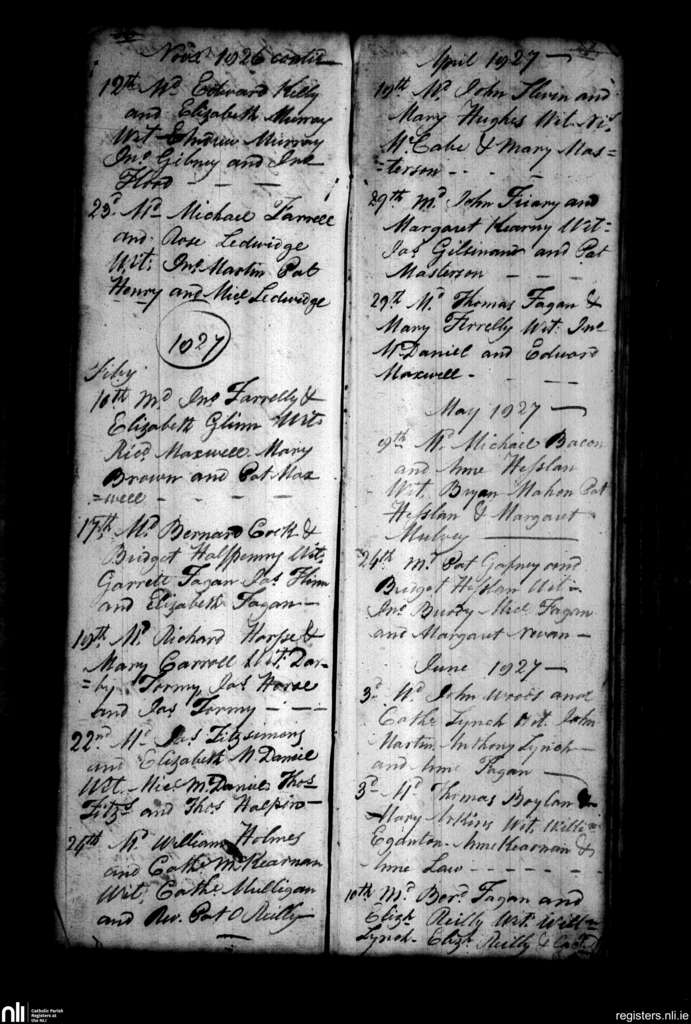 Novr 1826 contd
12th Md Edward Kelly
and Elizabeth Murray
Wit Andrew Murray
Jno Gibney and Jno
Flood
23d Md Michael Farrell
and Rose Ledwidge
Wit: Jno Martin Pat
Henry and Micl Ledwidge
1827
Feby
10th Md Jno Farrelly &
Elizabeth Glinn Wits
Ricd Maxwell Mary
Brown and Pat Max
=well
17th Md Bernard Cock &
Bridget Halfpenny Wit:
Garrett Fagan Jas Flinn
and Elizabeth Fagan
19th Md Richard Horse &
Mary Carroll Wit: Dar-
=by Tormy, Jas Horse
and Jas Tormy
22nd Md Jas Fitzsimons
and Elizabeth McDaniel
Wit. Micl McDaniel Thos
Fitzs and Thos Halpin
24th Md William Holmes
and Cathe McKearnan
Wit, Cathe Mulligan
and Rev. Pat O Reilly
April 1827
19th Md John Slevin and
Mary Hughes Wit
McCabe & Mary Mas=
=terson
29th Md John Friary and
Margaret Kearny Wit=
Jas Gilsinand and Pat
Masterson
29th Md Thomas Fagan &
Mary Ferrelly Wit: Jno
McDaniel and Edward
Maxwell
May 1827
9th Md Michael Bacon
and Anne Hesslan
Wit, Bryan Mahon Pat
Hesslan & Margaret
Mulvey
24th Md Pat Gafney and
Bridget Hesslan Wit=
Jno Micl Fagan
and Margaret
June 1827
3d Md John Woods and
Cathe Lynch Wit. John
Martin Anthony Lynch
and Anne Fagan
3d Md Thomas Boylan &
Mary Wit, Willm
Eganton Anne Kearnan &
Anne Law
10th Md Berd Fagan and
Elizh Reilly Wit: Willm
Lynch Elizh Reilly &
nli
Catholic Parish
Registers at
the NLI
registers.nli.ie